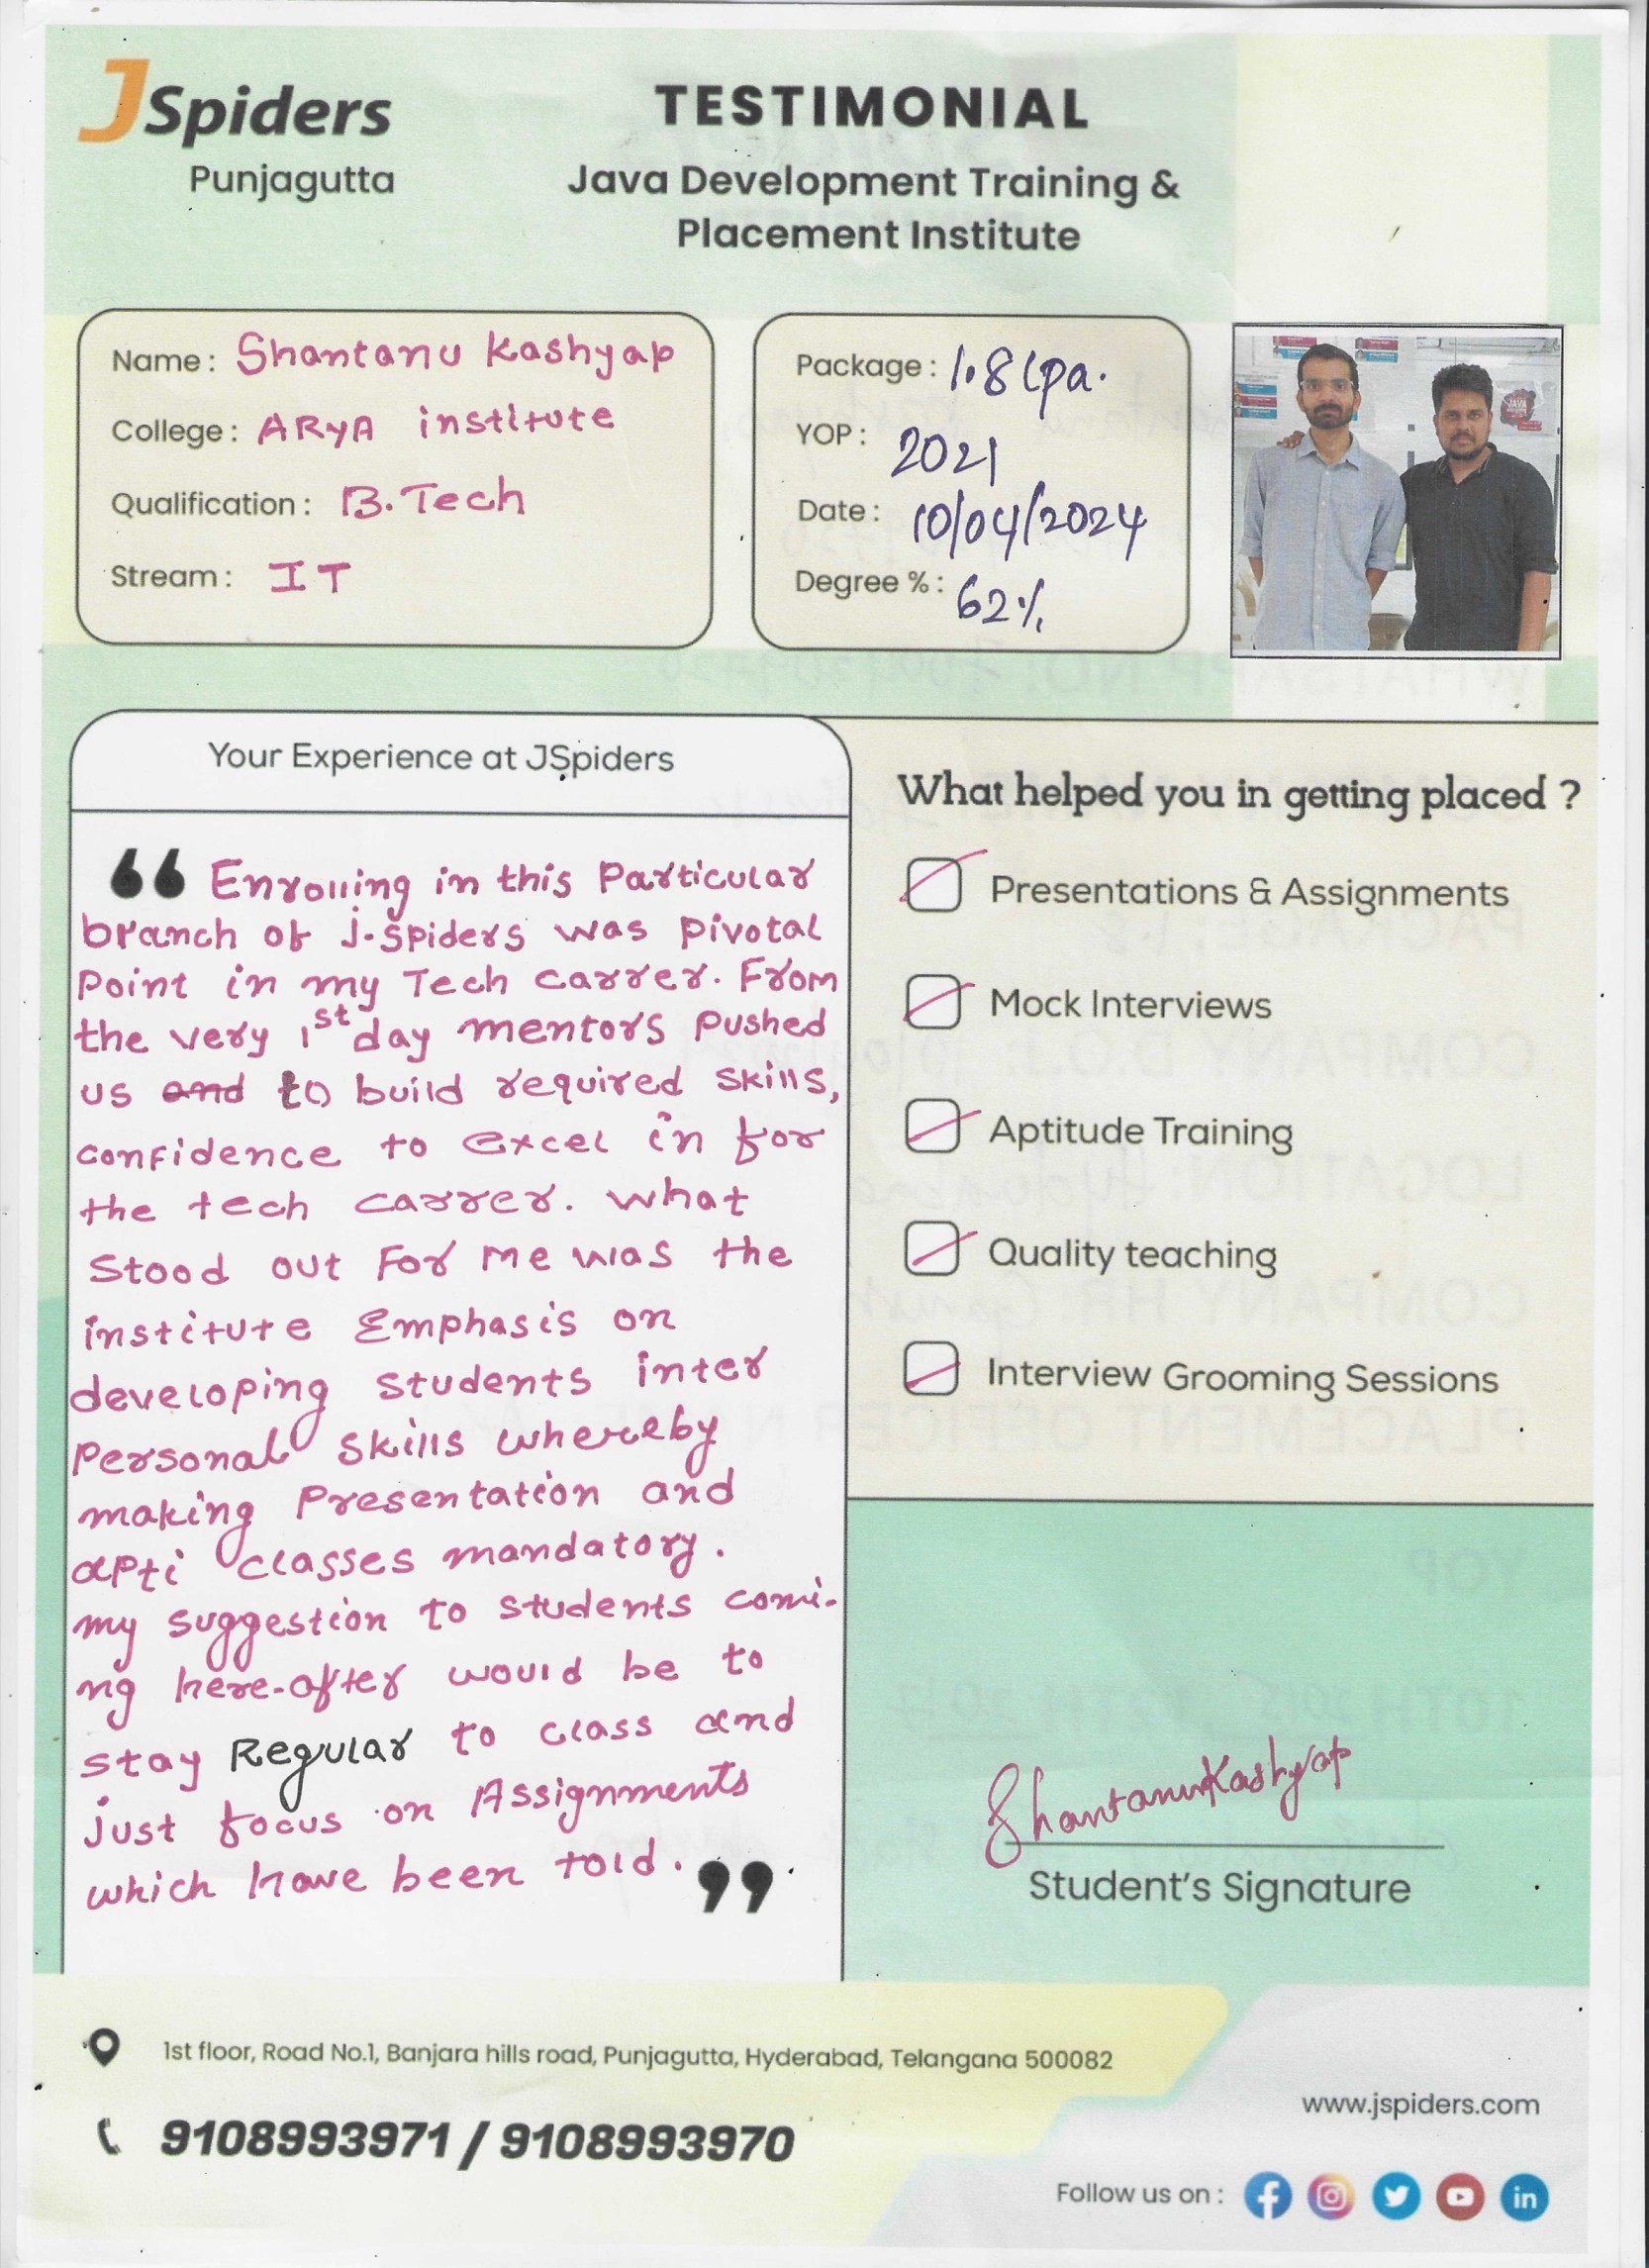 JSpiders
Punjagutta
TESTIMONIAL
Java Development Training &
Placement Institute
Name : Shantanu Kashyap
College : ARYA institute
Qualification : B.Tech
Stream : IT
Package : 1.8 lpa.
YOP : 2021
Date : 10/04/2024
Degree % : 62%
Your Experience at JSpiders
“ Enrolling in this Particular
branch of J.Spiders was pivotal
Point in my Tech carrer. From
the very 1st day mentors pushed
us and to build required skills,
confidence to excel in for
the tech carrer. what
stood out For me was the
institute Emphasis on
developing students inter
Personal skills whereby
making Presentation and
apti classes mandatory.
my suggestion to students comi-
ng here-after would be to
stay Regular to class and
just focus on Assignments
which have been told. ”
What helped you in getting placed ?
Presentations & Assignments
Mock Interviews
Aptitude Training
Quality teaching
Interview Grooming Sessions
Shantanu Kashyap
Student's Signature
1st floor, Road No.1, Banjara hills road, Punjagutta, Hyderabad, Telangana 500082
9108993971 / 9108993970
www.jspiders.com
Follow us on :